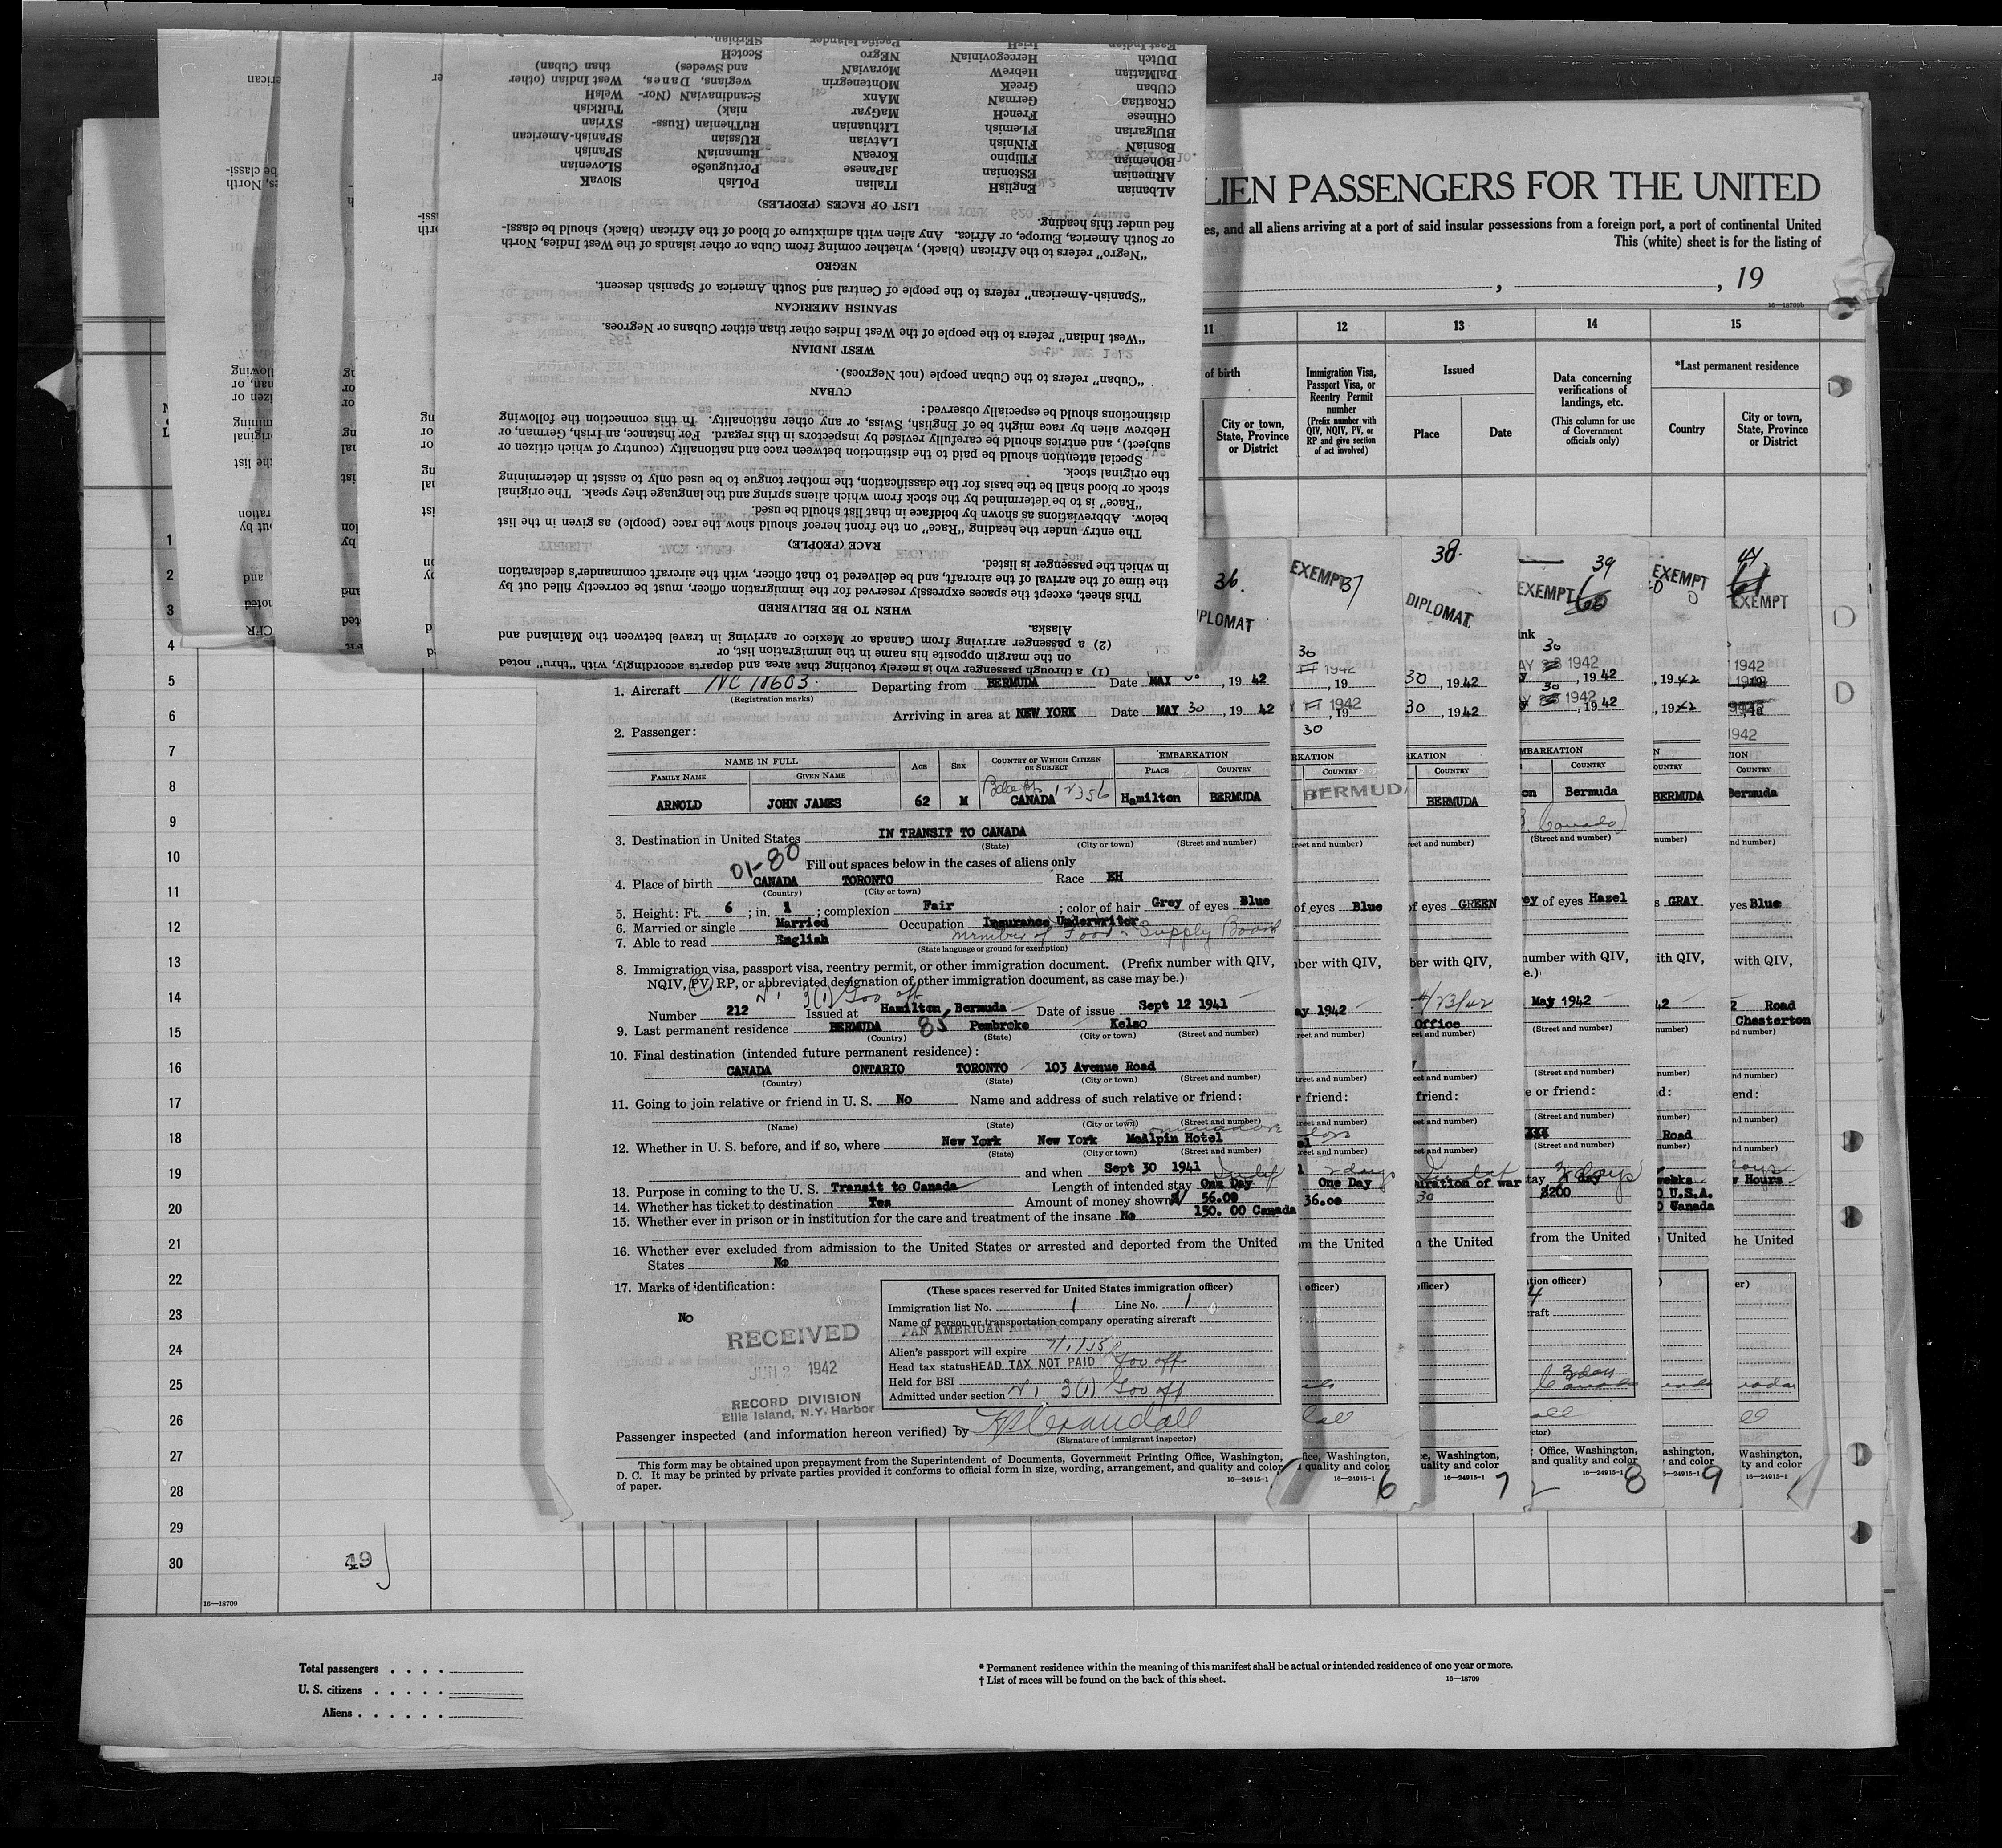 LIEN PASSENGERS FOR THE UNITED
es, and all aliens arriving at a port of said insular possessions from a foreign port, a port of continental United
This (white) sheet is for the listing of
, 19
16—18709b
11 12 13 14 15
of birth
City or town, State, Province or District
Immigration Visa, Passport Visa, or Reentry Permit number
(Prefix number with QIV, NQIV, PV, or RP and give section of act involved)
Issued
Place Date
Data concerning verifications of landings, etc.
(This column for use of Government officials only)
*Last permanent residence
Country
City or town, State, Province or District
(1) a through passenger who is merely touching that area and departs accordingly, with "thru" noted
on the margin opposite his name in the immigration list, or
(2) a passenger arriving from Canada or Mexico or arriving in travel between the Mainland and
Alaska.
WHEN TO BE DELIVERED
This sheet, except the spaces expressly reserved for the immigration officer, must be correctly filled out by
the time of the arrival of the aircraft, and be delivered to that officer, with the aircraft commander's declaration
in which the passenger is listed.
RACE (PEOPLE)
The entry under the heading "Race" on the front hereof should show the race (people) as given in the list
below. Abbreviations as shown by boldface in that list should be used.
"Race" is to be determined by the stock from which aliens spring and the language they speak. The original
stock or blood shall be the basis for the classification, the mother tongue to be used only to assist in determining
the original stock.
Special attention should be paid to the distinction between race and nationality (country of which citizen or
subject), and entries should be carefully revised by inspectors in this regard. For instance, an Irish, German, or
Hebrew alien by race might be of English, Swiss, or any other nationality. In this connection the following
distinctions should be especially observed:
CUBAN
"Cuban" refers to the Cuban people (not Negroes).
WEST INDIAN
"West Indian" refers to the people of the West Indies other than either Cubans or Negroes.
SPANISH AMERICAN
"Spanish-American" refers to the people of Central and South America of Spanish descent.
NEGRO
"Negro" refers to the African (black), whether coming from Cuba or other islands of the West Indies, North
or South America, Europe, or Africa. Any alien with admixture of blood of the African (black) should be classi-
fied under this heading.
LIST OF RACES (PEOPLES)
ALbanian EnglisH ITalian PoLish SlovaK
ARmenian EStonian JaPanese PortugueSe SLOvenian
BOhemian FIlipino KoreaN RumaniaN SPanish
BosniaN FiNnish LAtvian RUssian SPanish-American
BUlgarian FLemish LIthuanian RuThenian (Russ- SYrian
CHinese FrencH MaGyar niak) TuRkish
CRoatian GermaN MAnx ScandinaviaN (Nor- WelsH
CUban GreeK MOntenegrin wegians, Danes, West Indian (other
DalMatian HebreW MoraviaN and Swedes) than Cuban)
DUtch HercegoviniaN NEgro ScotcH
East Indian IrisH Pacific Islander SErbian
1. Aircraft NC 18603. Departing from BERMUDA Date MAY , 19 42
(Registration marks)
Arriving in area at NEW YORK Date MAY 30 , 19 42
2. Passenger:
NAME IN FULL AGE SEX COUNTRY OF WHICH CITIZEN OR SUBJECT EMBARKATION
FAMILY NAME GIVEN NAME PLACE COUNTRY
12356
ARNOLD JOHN JAMES 62 M CANADA Hamilton BERMUDA
3. Destination in United States IN TRANSIT TO CANADA
(State) (City or town) (Street and number)
01-80 Fill out spaces below in the cases of aliens only
4. Place of birth CANADA TORONTO Race EH
(Country) (City or town)
5. Height: Ft. 6 ; in. 1 ; complexion Fair ; color of hair Grey of eyes Blue
6. Married or single Married Occupation Insurance Underwriter
Member of Food & Supply Board
7. Able to read English
(State language or ground for exemption)
8. Immigration visa, passport visa, reentry permit, or other immigration document. (Prefix number with QIV,
NQIV, PV, RP, or abbreviated designation of other immigration document, as case may be.)
3(1) Gov off
Number 212 Issued at Hamilton, Bermuda Date of issue Sept 12 1941
9. Last permanent residence BERMUDA 85 Pembroke Kelso
(Country) (State) (City or town) (Street and number)
10. Final destination (intended future permanent residence):
CANADA ONTARIO TORONTO 103 Avenue Road
(Country) (State) (City or town) (Street and number)
11. Going to join relative or friend in U. S. No Name and address of such relative or friend:
(Name) (State) (City or town) (Street and number)
12. Whether in U. S. before, and if so, where New York New York McAlpin Hotel
(State) (City or town) (Street and number)
and when Sept 30 1941
13. Purpose in coming to the U. S. Transit to Canada Length of intended stay One Day
14. Whether has ticket to destination Yes Amount of money shown $ 56.00
150. 00 Canada
15. Whether ever in prison or in institution for the care and treatment of the insane No
16. Whether ever excluded from admission to the United States or arrested and deported from the United
States No
17. Marks of identification:
No
(These spaces reserved for United States immigration officer)
Immigration list No. 1 Line No. 1
Name of person or transportation company operating aircraft
PAN AMERICAN AIRWAYS
Alien's passport will expire
Head tax status HEAD TAX NOT PAID Gov off
Held for BSI
Admitted under section 3(1) Gov off
RECEIVED
JUN 2 1942
RECORD DIVISION
Ellis Island, N.Y. Harbor
Passenger inspected (and information hereon verified) by
(Signature of immigrant inspector)
This form may be obtained upon prepayment from the Superintendent of Documents, Government Printing Office, Washington,
D. C. It may be printed by private parties provided it conforms to official form in size, wording, arrangement, and quality and color
of paper.
16—24915-1
36. DIPLOMAT
EXEMPT 37
38. DIPLOMAT
39 EXEMPT 60
EXEMPT
41 EXEMPT
BERMUDA
BERMUDA
Bermuda
BERMUDA
Bermuda
of eyes Blue
of eyes GREEN
of eyes Hazel
GRAY
Blue
May 1942
Office
Road
Chesterton
One Day
36.00
duration of war
30
$200
weeks
U.S.A.
Canada
Hours
6 7 8 9
1
2
3
4
5
6
7
8
9
10
11
12
13
14
15
16
17
18
19
20
21
22
23
24
25
26
27
28
29
30
49
16—18709
Total passengers . . . .
U. S. citizens . . . . .
Aliens . . . . . .
* Permanent residence within the meaning of this manifest shall be actual or intended residence of one year or more.
† List of races will be found on the back of this sheet.
16—18709